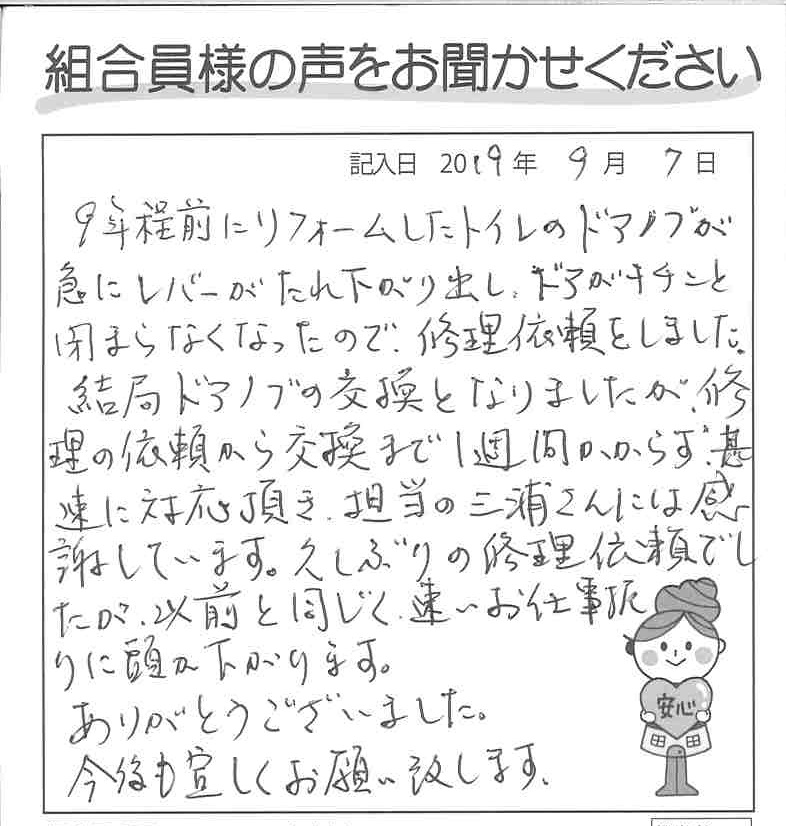 組合員様の声をお聞かせください
記入日 2019年 9月 7日
9年程前にリフォームしたトイレのドアノブが
急にレバーがたれ下がり出し、ドアがキチンと
閉まらなくなったので、修理依頼をしました。
結局ドアノブの交換となりましたが、修
理の依頼から交換まで1週間かからず、甚
速に対応頂き、担当の三浦さんには感
謝しています。久しぶりの修理依頼でし
たが、以前と同じく、速いお仕事振
りに頭が下がります。
ありがとうございました。
今後も宜しくお願い致します。
安心